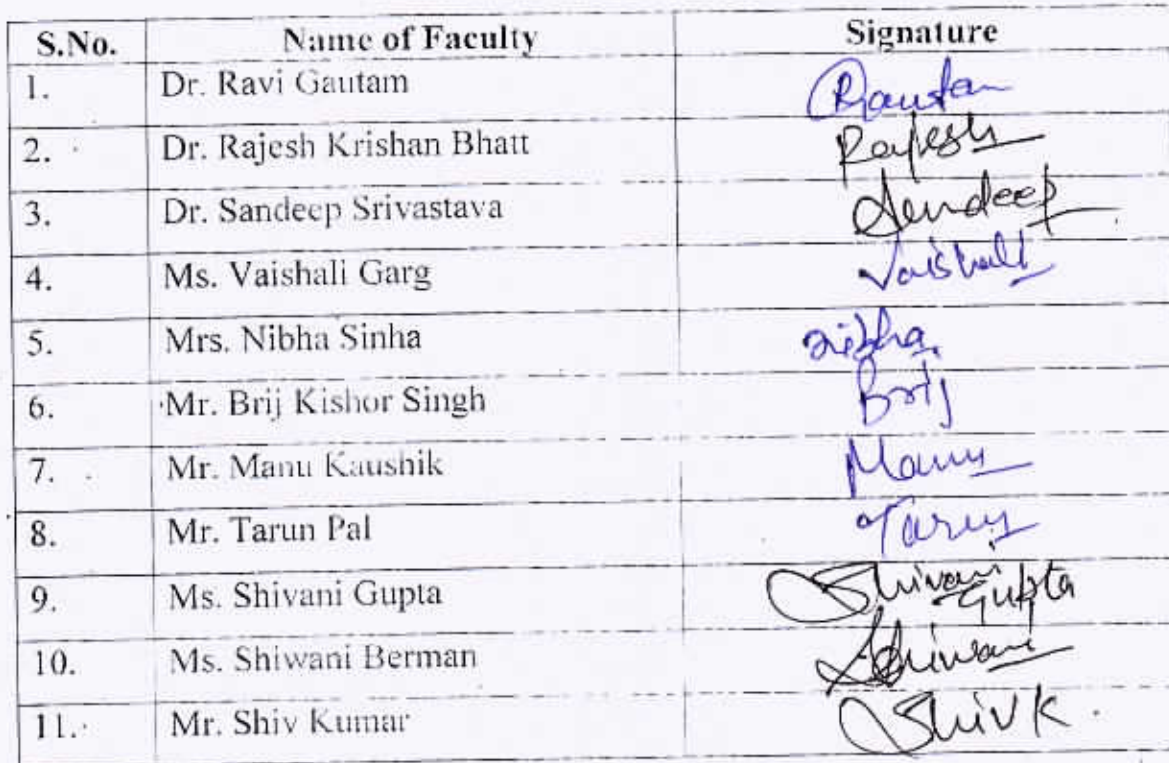 S.No. Name of Faculty Signature
1. Dr. Ravi Gautam RGautam
2. Dr. Rajesh Krishan Bhatt Rajesh
3. Dr. Sandeep Srivastava Sandeep
4. Ms. Vaishali Garg Vaishali
5. Mrs. Nibha Sinha Nibha
6. Mr. Brij Kishor Singh Brij
7. Mr. Manu Kaushik Manu
8. Mr. Tarun Pal Tarun
9. Ms. Shivani Gupta Shivani Gupta
10. Ms. Shiwani Berman Shiwani
11. Mr. Shiv Kumar Shiv K.